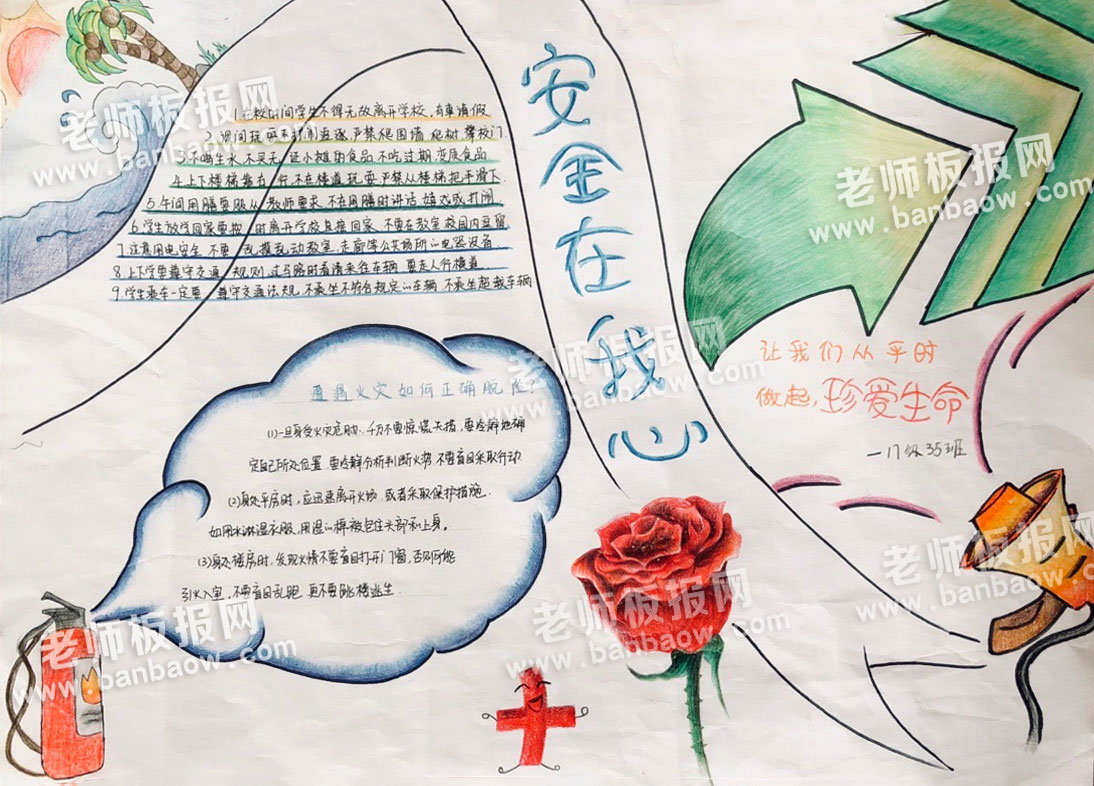 安全在我心
1.在校时间学生不得无故离开学校,有事请假
2.课间玩耍不打闹追逐,严禁爬围墙 爬树 攀校门.
3.不喝生水 不买无证小摊的食品 不吃过期 变质食品
4.上下楼梯靠右行,不在楼道玩耍 严禁从楼梯把手滑下.
5.午间用膳要服从教师要求,不在用膳时讲话 嬉戏或打闹
6.学生放学回家要按时离开学校直接回家,不要在教室 校园内逗留
7.注意用电安全,不要乱摸乱动教室,走廊等公共场所的电器设备.
8.上下学要遵守交通规则,过马路时看清来往车辆,要走人行横道
9.学生乘车一定要遵守交通法规,不乘坐不符合规定的车辆,不乘坐超载车辆
遭遇火灾如何正确脱险?
(1)一旦身受火灾危胁时,千万不要惊慌失措,要冷静地确
定自己所处位置 要冷静分析判断火势 不要盲目采取行动
(2)身处平房时,应迅速离开火场 或者采取保护措施.
如用水淋湿衣服,用温的棉被包住头部和上身。
(3)身处楼房时,发现火情不要盲目打开门窗,否则可能
引火入室,不要盲目乱跑 更不要跳楼逃生.
让我们从平时
做起,珍爱生命
老师板报网
www.banbaow.com
老师板报网
www.banbaow.com
老师板报网
www.banbaow.com
老师板报网
www.banbaow.com
老师板报网
www.banbaow.com
老师板报网
www.banbaow.com